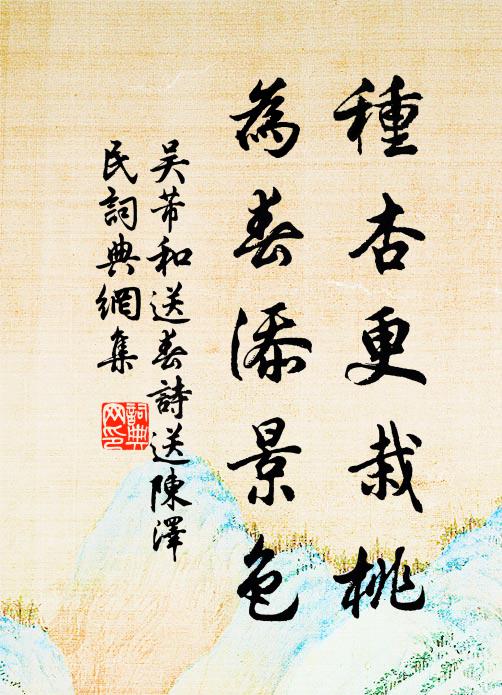 種杏更栽桃
為春添景色
吴芾和送春詩送陳澤
民詞典網集
詞典
网印